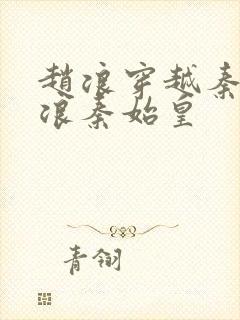 趙浪穿越秦
浪秦始皇
青翎